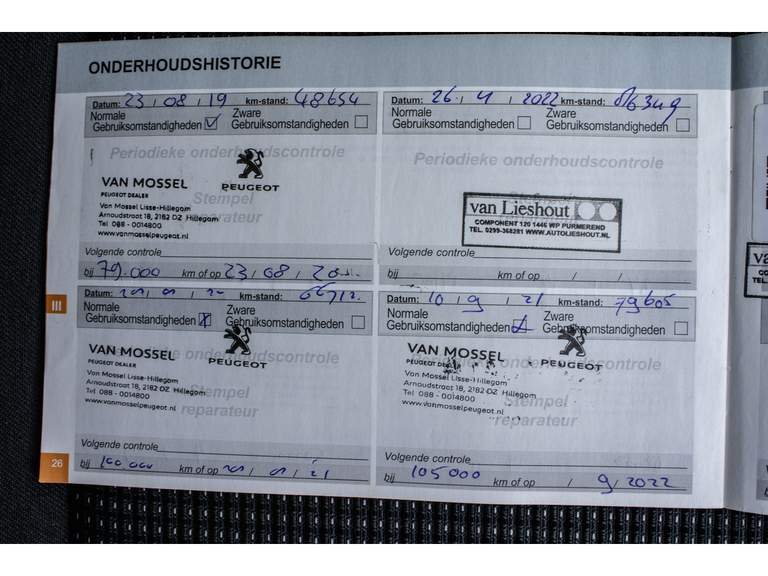 ONDERHOUDSHISTORIE
Datum: 23 / 08 / 19 km-stand: 48654
Normale Gebruiksomstandigheden Zware Gebruiksomstandigheden
Periodieke onderhoudscontrole
VAN MOSSEL PEUGEOT
PEUGEOT DEALER
Stempel
Van Mossel Lisse-Hillegom
Arnoudstraat 18, 2182 DZ Hillegom
reparateur
Tel 088 - 0014800
www.vanmosselpeugeot.nl
Volgende controle
bij 79.000 km of op 23 / 08 / 20
Datum: 26 / / 2022 km-stand:
Normale Gebruiksomstandigheden Zware Gebruiksomstandigheden
Periodieke onderhoudscontrole
van Lieshout
COMPONENT 120 1446 WP PURMEREND
TEL. 0299-368281 WWW.AUTOLIESHOUT.NL
Volgende controle
bij km of op / /
III
Datum: km-stand:
Normale Gebruiksomstandigheden Zware Gebruiksomstandigheden
Periodieke onderhoudscontrole
VAN MOSSEL PEUGEOT
PEUGEOT DEALER
Van Mossel Lisse-Hillegom
Arnoudstraat 18, 2182 DZ Hillegom
Stempel
Tel 088 - 0014800
reparateur
www.vanmosselpeugeot.nl
Volgende controle
bij km of op / / 21
Datum: 10 / 9 / 21 km-stand: 79605
Normale Gebruiksomstandigheden Zware Gebruiksomstandigheden
Periodieke onderhoudscontrole
VAN MOSSEL PEUGEOT
PEUGEOT DEALER
Van Mossel Lisse-Hillegom
Arnoudstraat 18, 2182 DZ Hillegom
Stempel
Tel 088 - 0014800
reparateur
www.vanmosselpeugeot.nl
Volgende controle
bij 105000 km of op / 9 / 2022
26